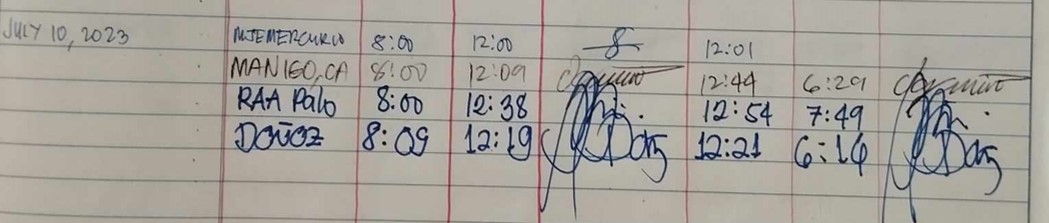 JULY 10, 2023 MJEMERCURIO 8:00 12:00 12:01
MANIEGO, CA 8:00 12:09 12:44 6:29
RAA Palo 8:00 12:38 12:54 7:49
DOÑOZ 8:09 12:19 12:21 6:16